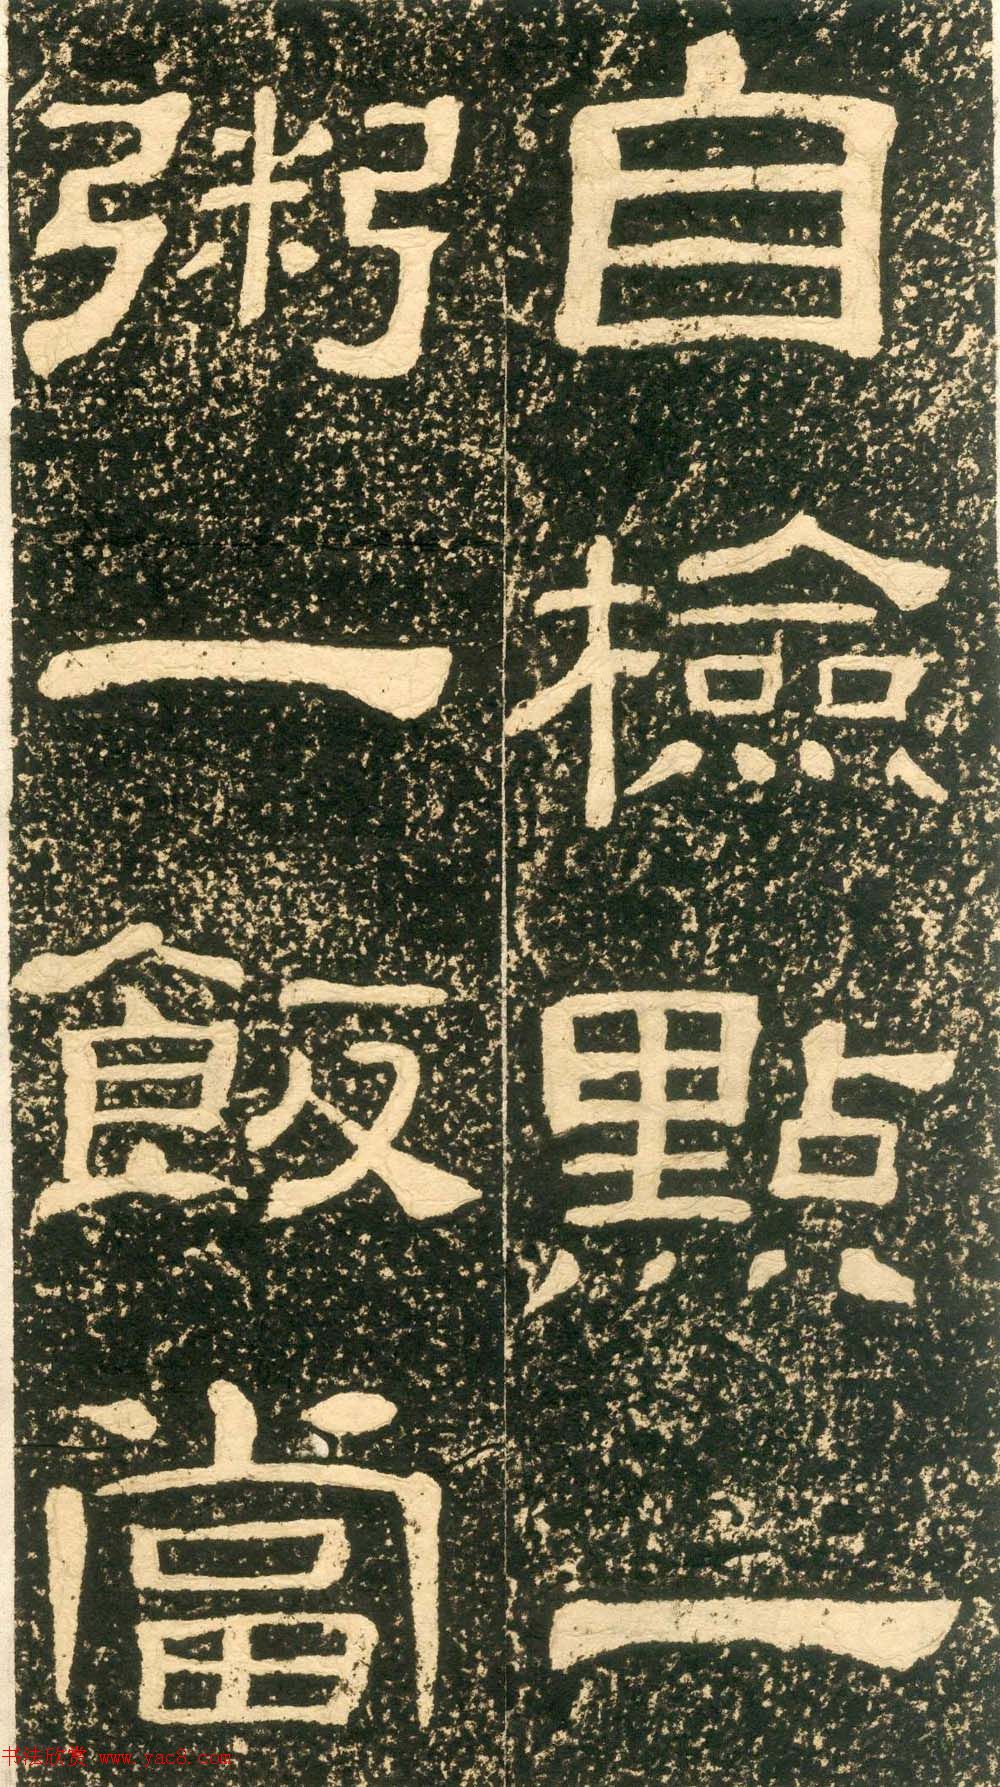 自檢點一
粥一飯當
书法欣赏 www.yac8.com